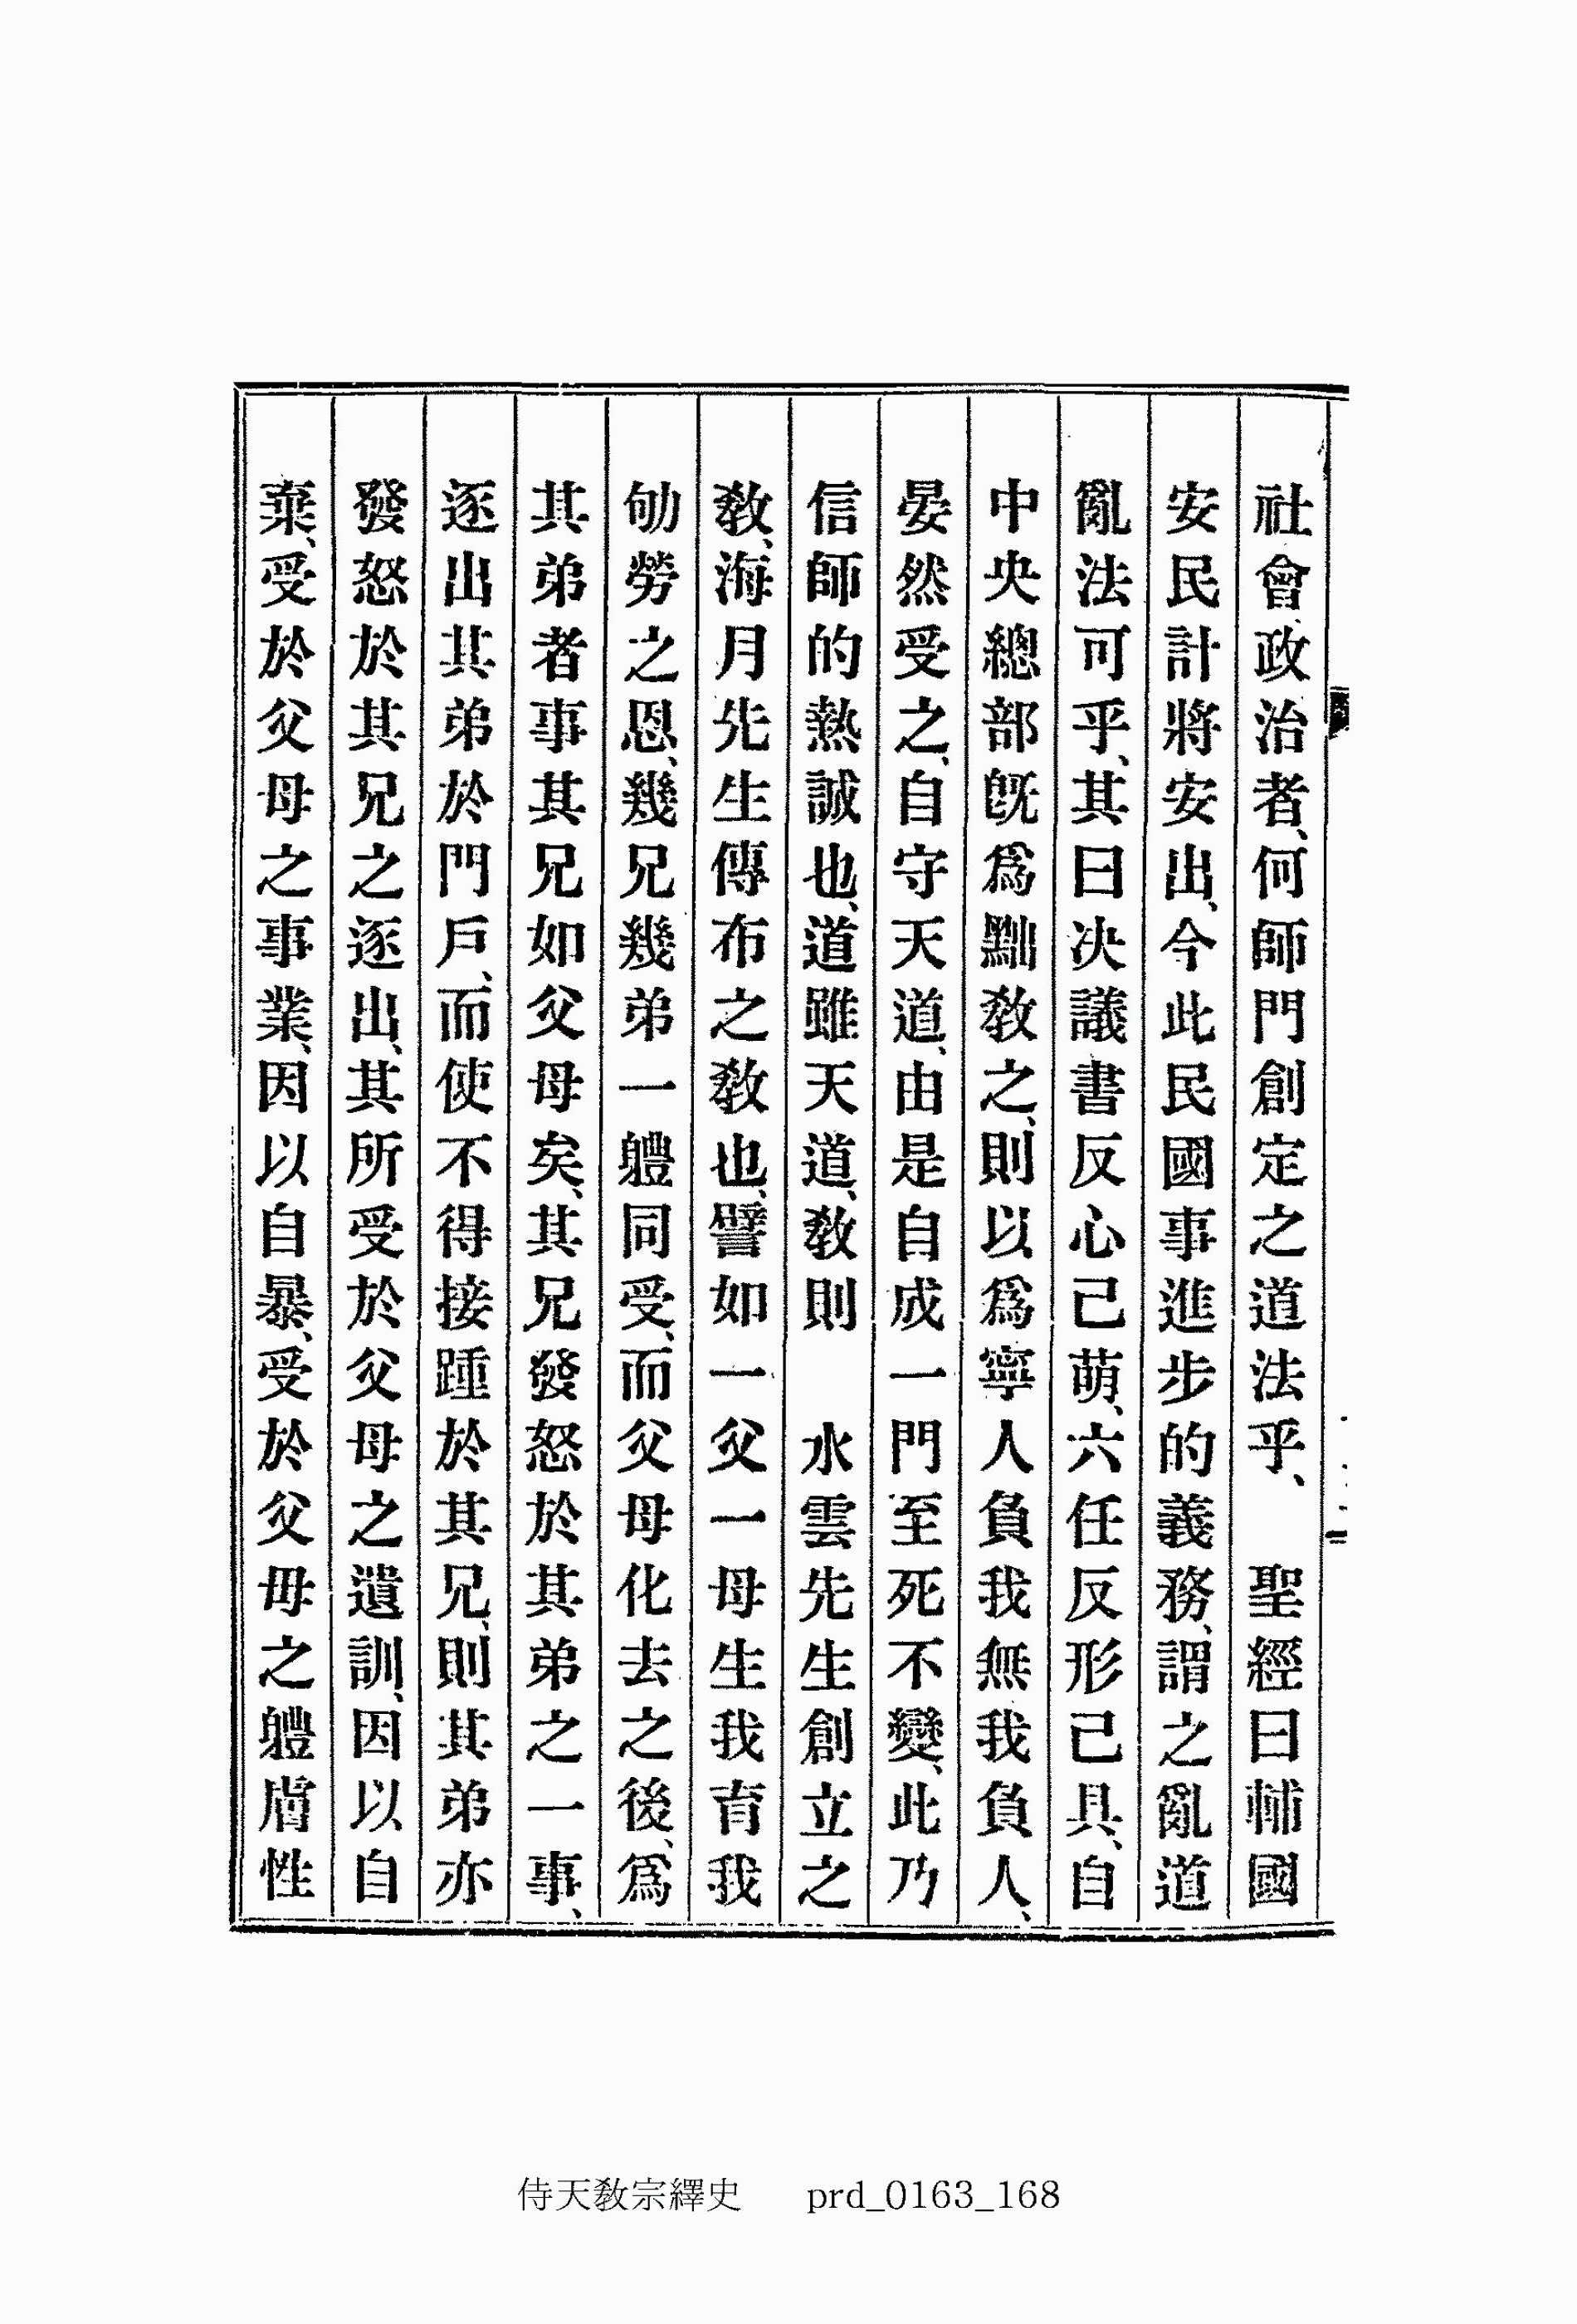 社會政治者、何師門創定之道法乎、　聖經曰輔國
安民計將安出、今此民國事進步的義務、謂之亂道
亂法可乎、其曰決議書反心己萌、六任反形己具、自
中央總部旣爲黜敎之、則以爲寧人負我無我負人、
晏然受之、自守天道、由是自成一門至死不變、此乃
信師的熱誠也、道雖天道、敎則　水雲先生創立之
敎、海月先生傳布之敎也、譬如一父一母生我育我
劬勞之恩、幾兄幾弟一軆同受、而父母化去之後、爲
其弟者事其兄如父母矣、其兄發怒於其弟之一事、
逐出其弟於門戶、而使不得接踵於其兄、則其弟亦
發怒於其兄之逐出、其所受於父母之遺訓、因以自
棄、受於父母之事業、因以自暴、受於父母之軆膚性
侍天敎宗繹史　prd_0163_168